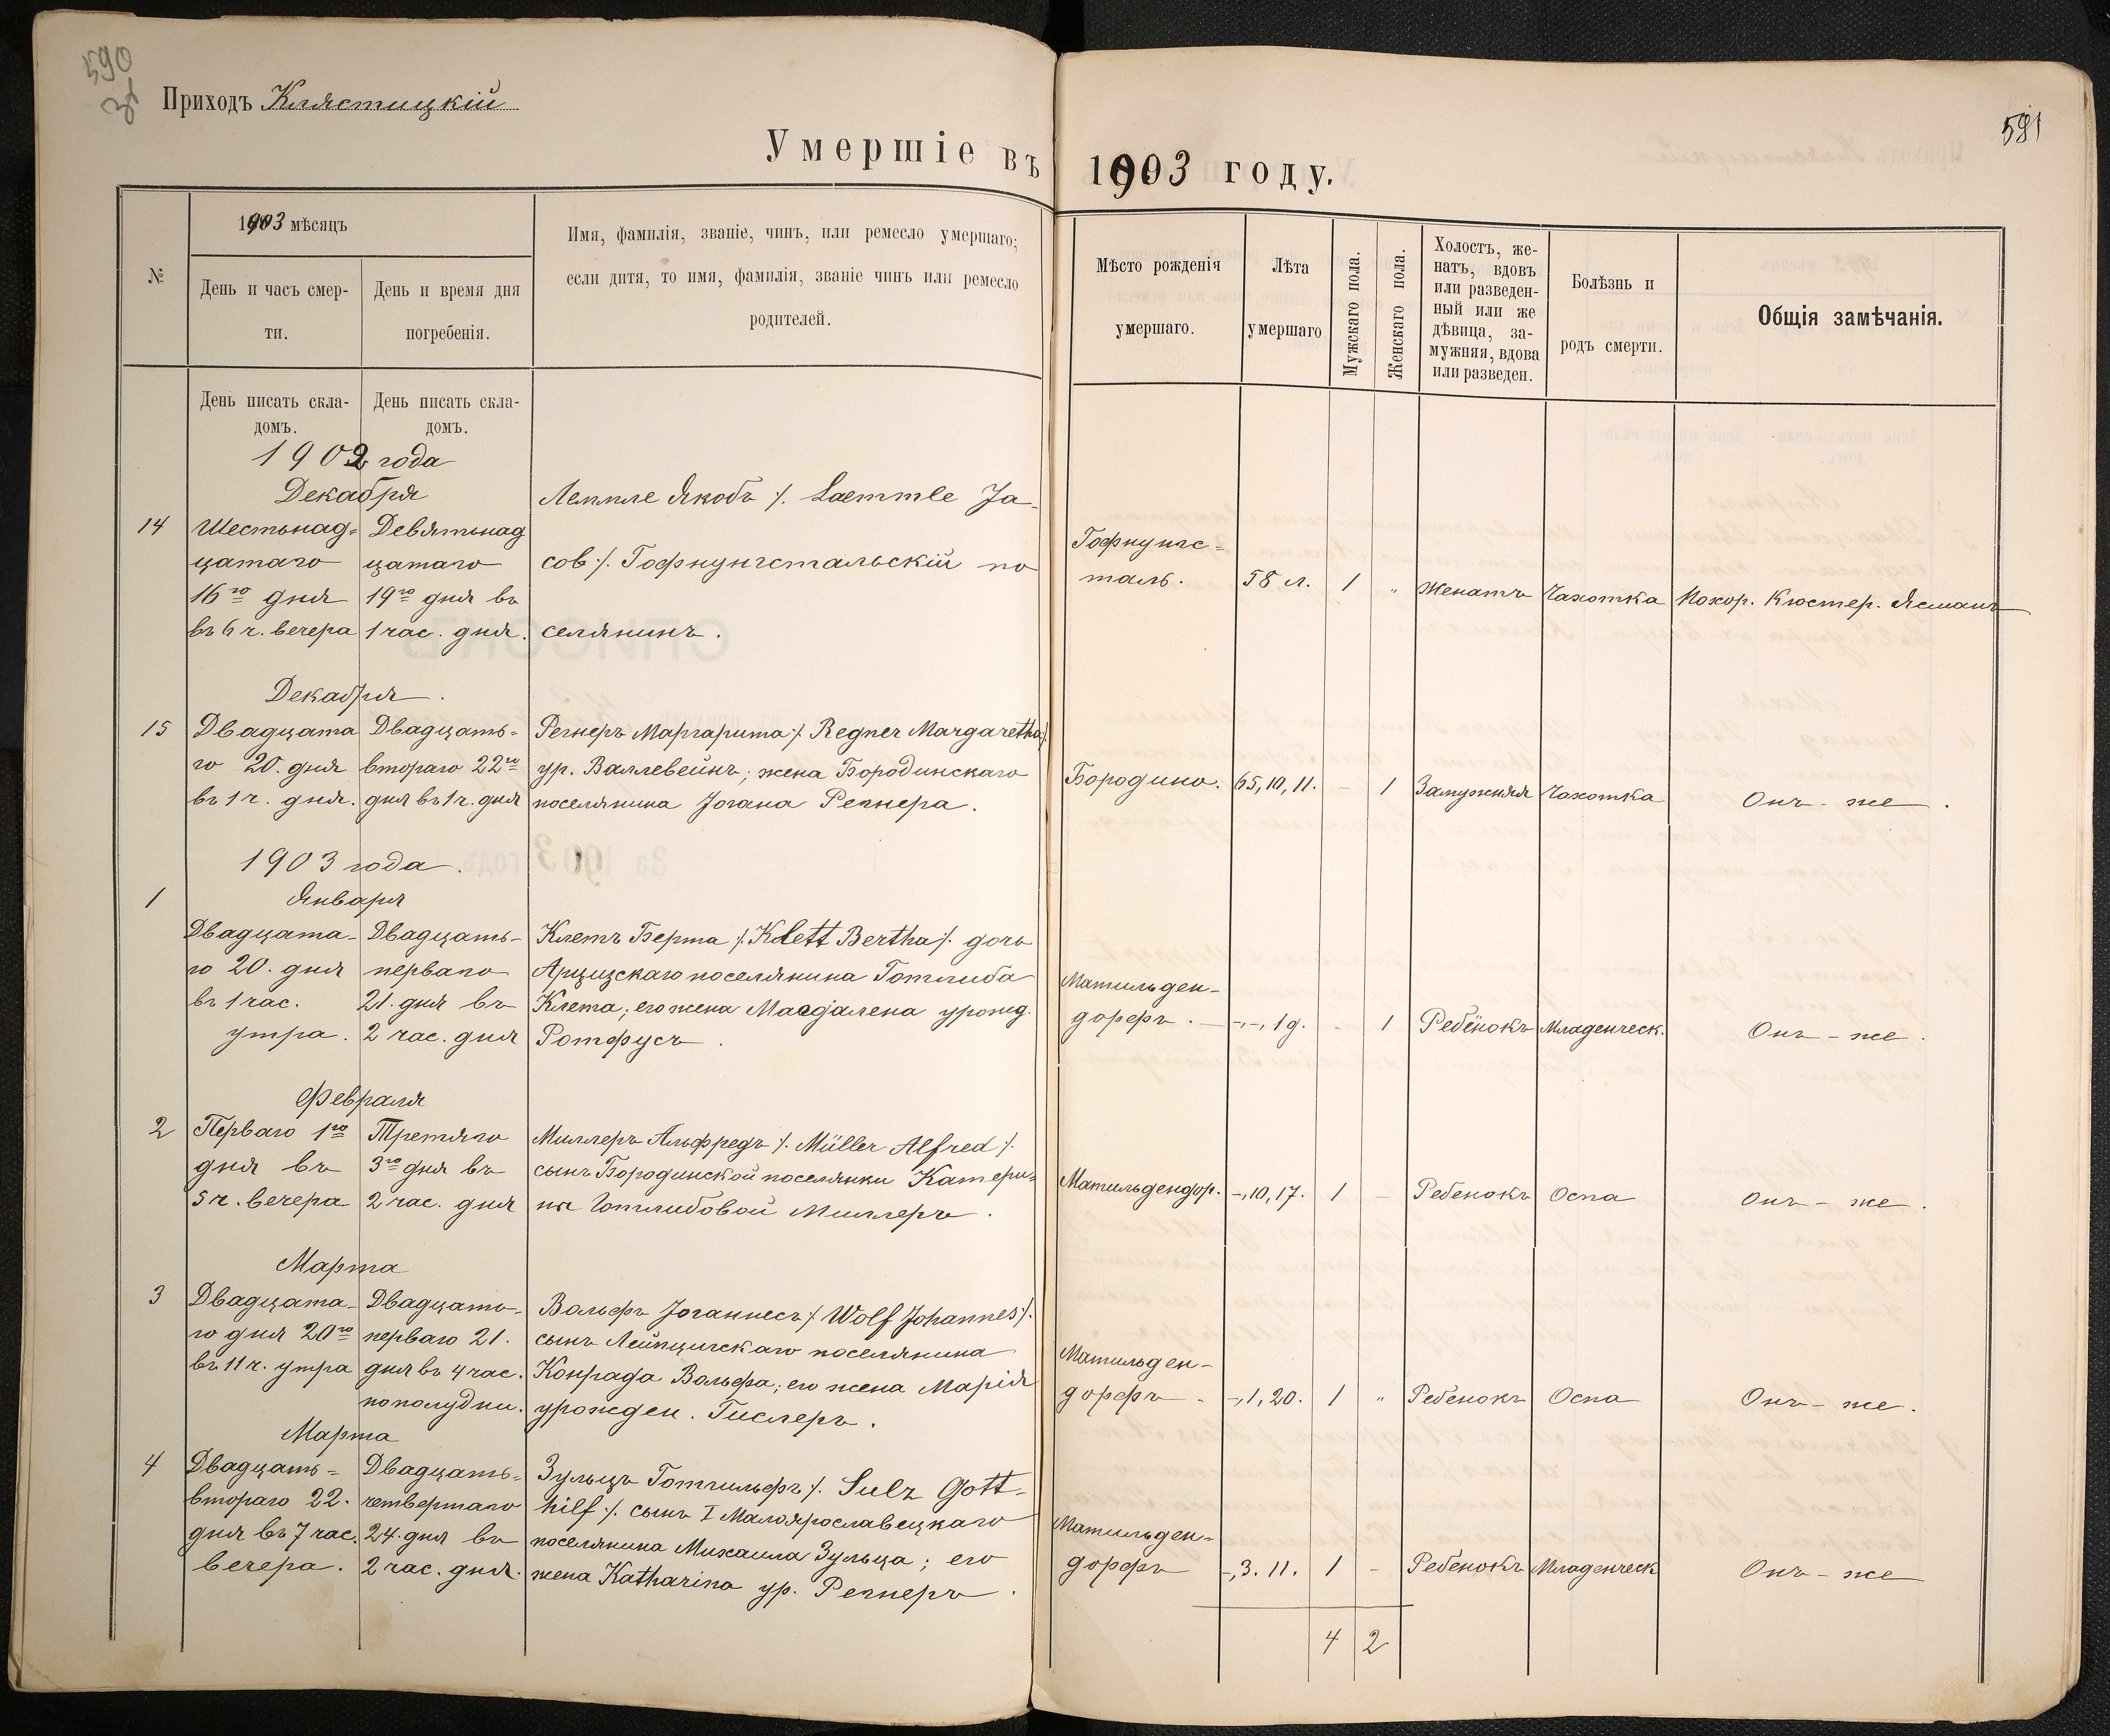 590
Приходъ Клястицкій
Умершіе въ 1903 году.
591
№
1903 мѣсяцъ
День и часъ смер-
ти.
День и время дня
погребенія.
Имя, фамилія, званіе, чинъ, или ремесло умершаго;
если дитя, то имя, фамилія, званіе чинъ или ремесло
родителей.
Мѣсто рожденія
умершаго.
Лѣта
умершаго
Мужскаго пола.
Женскаго пола.
Холостъ, же-
натъ, вдовъ
или разведен-
ный или же
дѣвица, за-
мужняя, вдова
или разведен.
Болѣзнь и
родъ смерти.
Общія замѣчанія.
День писать скла-
домъ.
День писать скла-
домъ.
1902 года
Декабря
14
Шестьнад=
цатаго
16го дня
въ 6 ч. вечера
Девятьнад
цатаго
19го дня въ
1 час. дня.
Леммле Якобъ /. Laemmle Ja-
cob ./. Гофнунгстальскій по
селянинъ.
Гофнунгс=
таль.
58 л.
1
"
Женатъ
Чахотка
Похор. Кюстер. Ясманъ
Декабря.
15
Двадцата
го 20. дня
въ 1 ч. дня.
Двадцать=
втораго 22го
дня въ 1 ч. дня
Регнеръ Маргарита /. Regner Margaretha /.
ур. Валлевейнъ; жена Бородинскаго
поселянина Іогана Регнера.
Бородино.
65, 10, 11.
-
1
Замужняя
Чахотка
Онъ - же.
1903 года.
Января
1
Двадцата-
го 20. дня
въ 1 час.
утра.
Двадцать-
перваго
21. дня въ
2 час. дня
Клетъ Берта /. Klett Bertha /. дочь
Арцизскаго поселянина Готлиба
Клета; его жена Магдалена урожд.
Ротфусъ.
Матильден-
дорфъ.
-,-, 1 д.
-
1
Ребёнокъ
Младенческ.
Онъ - же.
Февраля
2
Перваго 1го
дня въ
5 ч. вечера
Третяго
3го дня въ
2 час. дня
Миллеръ Альфредъ /. Müller Alfred /.
сынъ Бородинской поселянки Катери=
ны Готлибовой Миллеръ.
Матильдендор.
-, 10, 17.
1
-
Ребенокъ
Оспа
Онъ - же.
Марта
3
Двадцата-
го дня 20го
въ 11 ч. утра
Двадцать-
перваго 21.
дня въ 4 час.
пополудни.
Вольфъ Іоганнесъ /. Wolf Johannes /.
сынъ Лейпцигскаго поселянина
Конрада Вольфа; его жена Марія
урожден. Гислеръ.
Матильден-
дорфъ.
-, 1, 20.
1
"
Ребенокъ
Оспа
Онъ - же.
Марта
4
Двадцать=
втораго 22.
дня въ 7 час.
вечера.
Двадцать=
четвертаго
24. дня въ
2 час. дня.
Зульцъ Готгильфъ /. Sulz Gott-
hilf /. сынъ I Малоярославецкаго
поселянина Михаила Зульца; его
жена Katharina ур. Регнеръ.
Матильден=
дорфъ
-, 3. 11.
1
-
Ребенокъ
Младенческ
Онъ - же
4
2